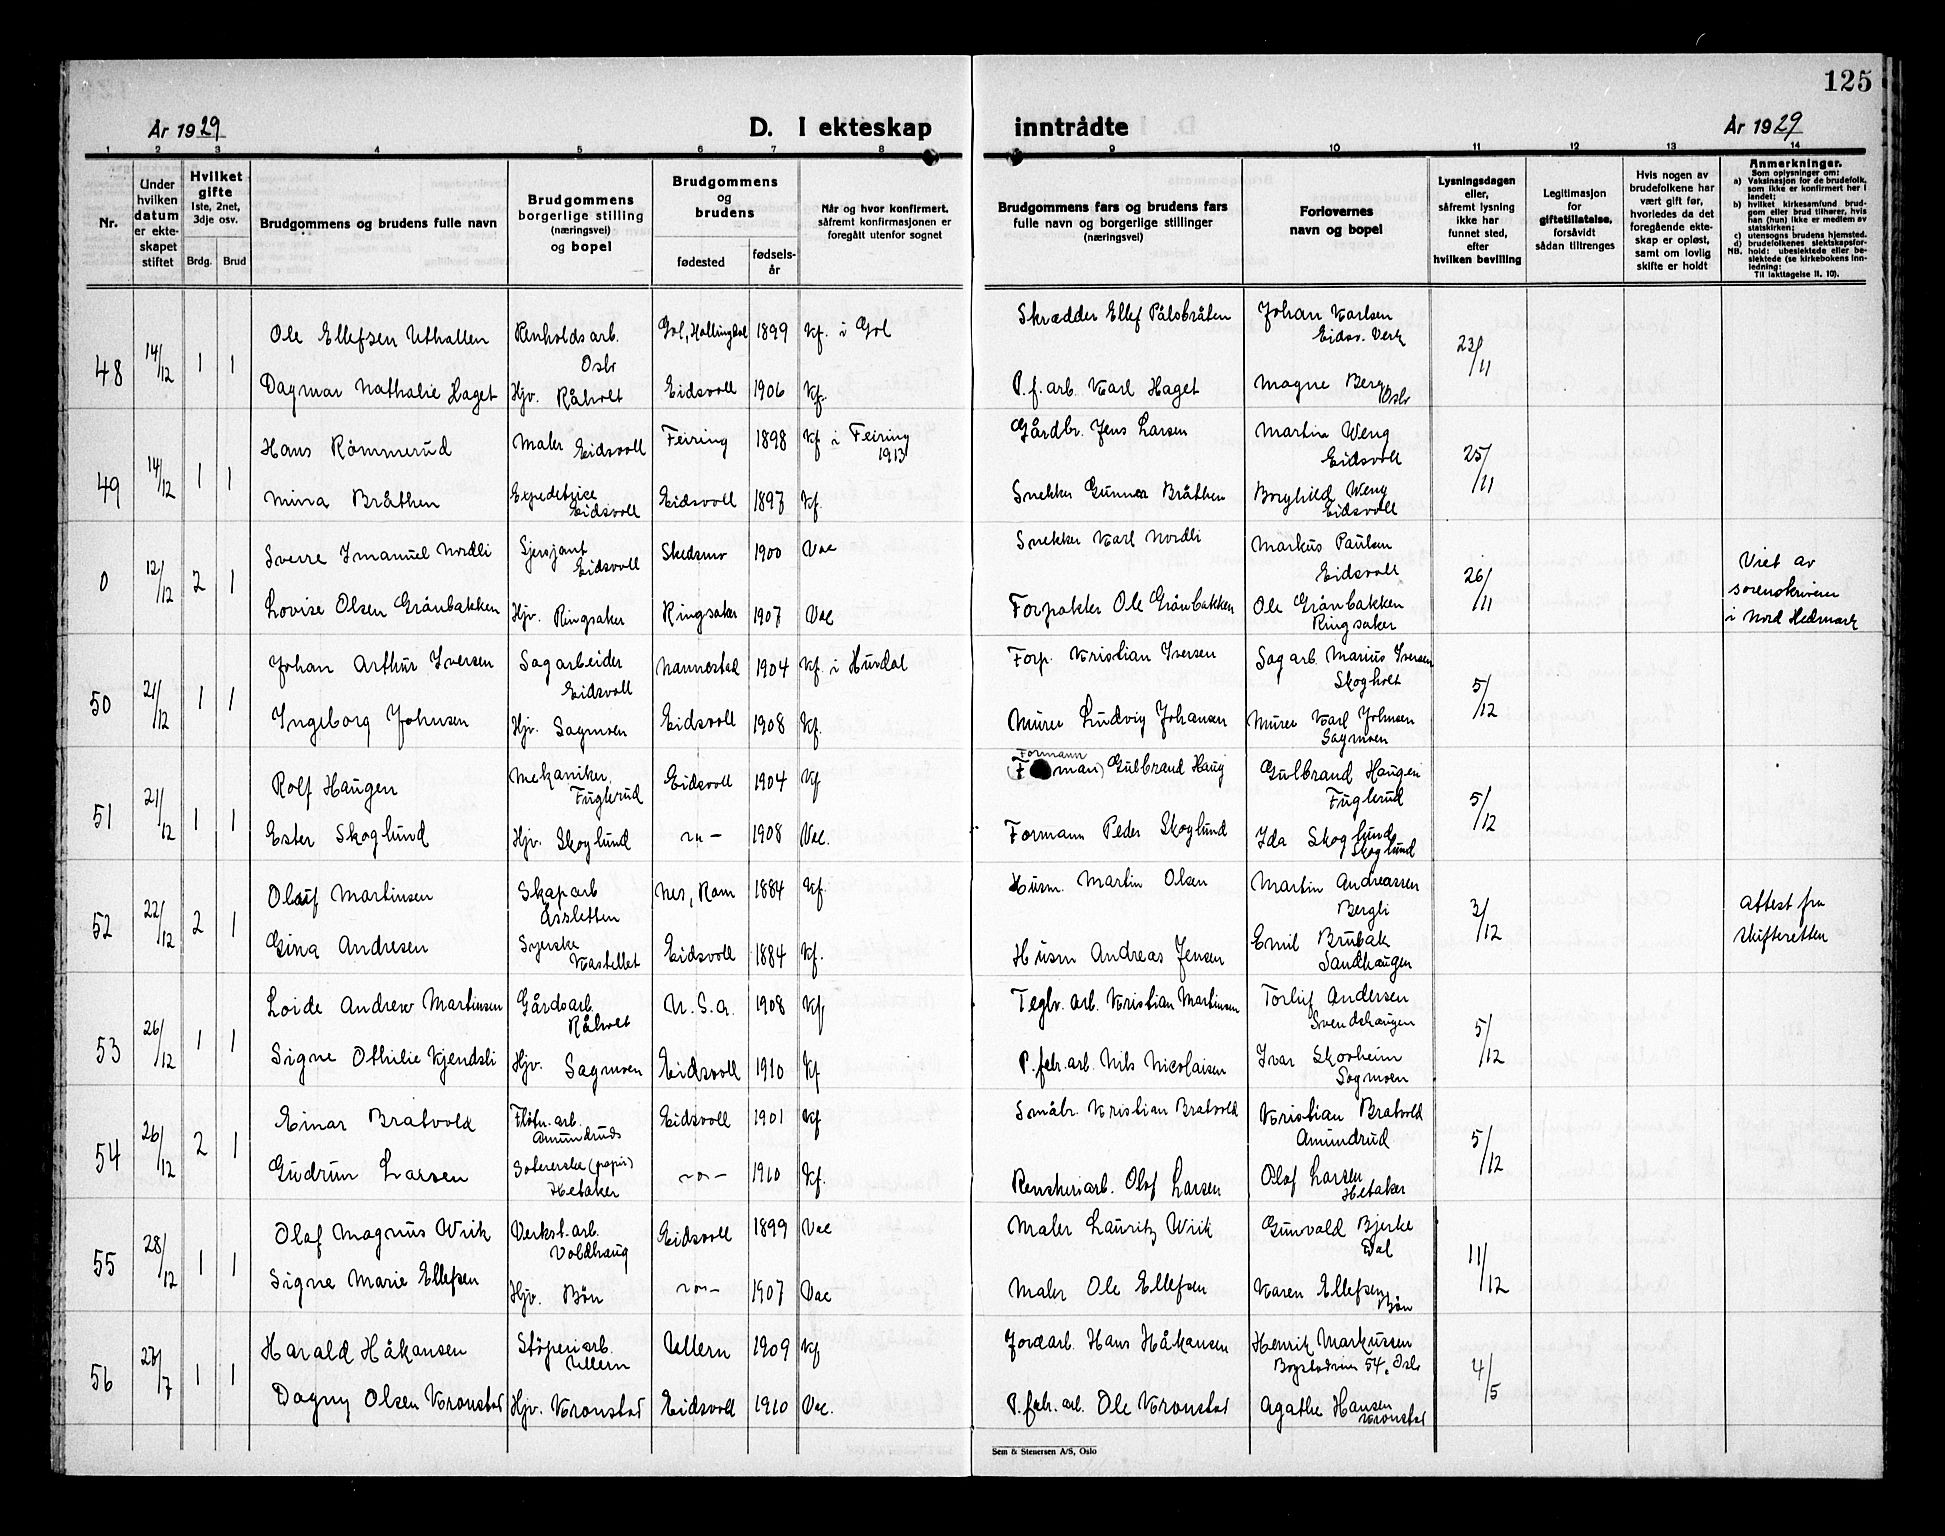 125
År 1929
D. I ekteskap
inntrådte
År 1929
1 2 3 4 5 6 7 8 9 10 11 12 13 14
Nr.
Under hvilken datum er ekteskapet stiftet
Hvilket gifte
1ste, 2net, 3dje osv.
Brdg. Brud
Brudgommens og brudens fulle navn
Brudgommens borgerlige stilling (næringsvei) og bopel
Brudgommens og brudens
fødested
fødselsår
Når og hvor konfirmert, såfremt konfirmasjonen er foregått utenfor sognet
Brudgommens fars og brudens fars fulle navn og borgerlige stillinger (næringsvei)
Forlovernes navn og bopel
Lysningsdagen eller, såfremt lysning ikke har funnet sted, efter hvilken bevilling
Legitimasjon for giftetillatelse, forsåvidt sådan tiltrenges
Hvis nogen av brudefolkene har vært gift før, hvorledes da det foregående ekteskap er opløst, samt om lovlig skifte er holdt
Anmerkninger.
Som oplysninger om:
a) Vaksinasjon for de brudefolk, som ikke er konfirmert her i landet;
b) hvilket kirkesamfund brudgom eller brud tilhører, hvis han (hun) ikke er medlem av statskirken;
c) utensogns brudens hjemsted.
d) brudefolkenes slektskapsforhold: ubeslektede eller beslektede (se kirkebokens innledning;
NB.
Til iakttagelse II. 10).
48 14/12 1 1
Ole Ellefsen Uthallen Renholdsarb. Oslo Gol, Hallingdal 1899 Kf. i Gol Skrædder Ellef Pålsbråten Johan Karlsen Eidsv. Verk 23/11
Dagmar Nathalie Haget Hjv. Råholt Eidsvoll 1906 Kf. P.f.arb. Karl Haget Magne Berg Oslo
49 14/12 1 1
Hans Rømmerud Maler Eidsvoll Feiring 1898 Kf i Feiring 1913 Gårdbr. Jens Larsen Martin Weng Eidsvoll 25/11
Mina Bråthen Expeditrice Eidsvoll Eidsvoll 1897 Kf. Snekker Gunnar Bråthen Borghild Weng Eidsvoll
0 12/12 2 1
Sverre Imanuel Nordli Sjersjant Eidsvoll Skedsmo 1900 Vac Snekker Karl Nordli Markus Paulsen Eidsvoll 26/11 Viet av sorenskriveren i Nord Hedmark
Lovise Olsen Grånbakken Hjv. Ringsaker Ringsaker 1907 Vac Forpakter Ole Grånbakken Ole Grånbakken Ringsaker
50 21/12 1 1
Johan Arthur Iversen Sagarbeider Eidsvoll Nannestad 1904 Kf. i Hurdal Forp. Kristian Iversen Sagarb. Marius Iversen Skogholt 5/12
Ingeborg Johnsen Hjv. Sagmoen Eidsvoll 1908 Kf. Murer Ludvig Johansen Murer Karl Johnsen Sagmoen
51 21/12 1 1
Rolf Haugen Mekaniker, Fuglerud Eidsvoll 1904 Kf Formann Gulbrand Haug Gulbrand Haugen Fuglerud 5/12
Ester Skoglund Hjv. Skoglund –"– 1908 Vac. Formann Peder Skoglund Ida Skoglund Skoglund
52 22/12 2 1
Olauf Martinsen Skaparb Åssletten Nes, Rom 1884 Kf. Husm. Martin Olsen Martin Andreassen Bergli 3/12 Attest fra skifteretten
Gina Andresen Syerske Kastellet Eidsvoll 1884 Kf. Husm Andreas Jensen Emil Brubak Sandhaugen
53 26/12 1 1
Loide Andrew Martinsen Gårdsarb. Råholt U.S.A. 1908 Kf Teglv.arb. Kristian Martinsen Torluf Andersen Svendshaugen 5/12
Signe Othilie Kjendsli Hjv. Sagmoen Eidsvoll 1910 Kf P.fabr.arb. Nils Nicolaisen Ivar Skovheim Sagmoen
54 26/12 2 1
Einar Bratvold Fløtn.arb. Amundruds Eidsvoll 1901 Kf Småbr. Kristian Bratvold Kristian Bratvold Amundrud 5/12
Gudrun Larsen Sotererske (papir) Hetaker –"– 1910 Kf. Renskeriarb. Olaf Larsen Olaf Larsen Hetaker
55 28/12 1 1
Olaf Magnus Wiik Verkst.arb. Voldhaug Eidsvoll 1899 Vac Maler Lauritz Wiik Gunvald Bjerke Dal 11/12
Signe Marie Ellefsen Hjv. Bøn –"– 1907 Vac Maler Ole Ellefsen Karen Ellefsen Bøn
56 27/7 1 1
Harald Håkansen Støperiarb. Ullern Ullern 1909 Kf Jordarb. Hans Håkansen Henrik Markussen Bogstadveien 54, Oslo 4/5
Dagny Olsen Kronstad Hjv. Kronstad Eidsvoll 1910 Vac. P.fabr.arb. Ole Kronstad Agathe Hansen Kronstad
Sem & Stenersen A/S, Oslo